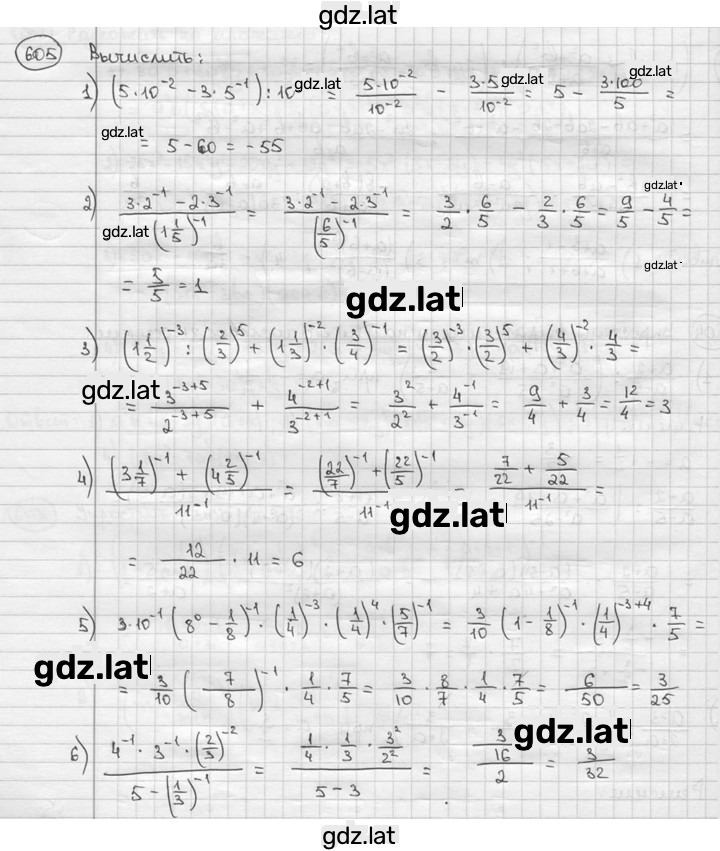 gdz.lat
605 Вычислить:
1) (5·10⁻² − 3·5⁻¹) : 10 gdz.lat = 5·10⁻²/10⁻² − 3·5/10⁻² gdz.lat = 5 − 3·100/5 = gdz.lat
gdz.lat = 5 − 60 = −55
2) (3·2⁻¹ − 2·3⁻¹)/(1 1/5)⁻¹ = (3·2⁻¹ − 2·3⁻¹)/(6/5)⁻¹ = 3/2 · 6/5 − 2/3 · 6/5 = 9/5 − 4/5 = gdz.lat
gdz.lat
= 5/5 = 1 gdz.lat
gdz.lat
3) (1 1/2)⁻³ : (2/3)⁵ + (1 1/3)⁻² · (3/4)⁻¹ = (3/2)⁻³ · (3/2)⁵ + (4/3)⁻² · 4/3 =
gdz.lat = 3⁻³⁺⁵/2⁻³⁺⁵ + 4⁻²⁺¹/3⁻²⁺¹ = 3²/2² + 4⁻¹/3⁻¹ = 9/4 + 3/4 = 12/4 = 3
4) ((3 1/7)⁻¹ + (4 2/5)⁻¹)/11⁻¹ = ((22/7)⁻¹ + (22/5)⁻¹)/11⁻¹ = (7/22 + 5/22)/11⁻¹ =
gdz.lat
= 12/22 · 11 = 6
5) 3·10⁻¹ (8⁰ − 1/8)⁻¹ · (1/4)⁻³ · (1/4)⁴ · (5/7)⁻¹ = 3/10 · (1 − 1/8)⁻¹ · (1/4)⁻³⁺⁴ · 7/5 =
gdz.lat = 3/10 (7/8)⁻¹ · 1/4 · 7/5 = 3/10 · 8/7 · 1/4 · 7/5 = 6/50 = 3/25
6) (4⁻¹ · 3⁻¹ · (2/3)⁻²)/(5 − (1/3)⁻¹) = (1/4 · 1/3 · 3²/2²)/(5 − 3) = (3/16)/2 = 3/32
gdz.lat
gdz.lat